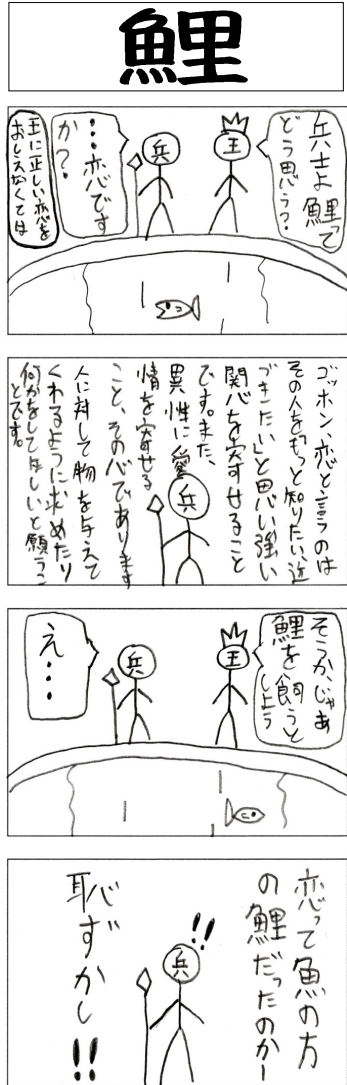 鯉
兵士よ鯉って
どう思う？
王
兵
…恋です
か？
王に正しい恋を
おしえなくては
ゴッホン、恋と言うのは
その人をもっと知りたい、近
づきたい」と思い強い
関心を寄すせること
です。また、
異性に愛
情を寄せる
こと、その心であります
人に対して物を与えて
くれるように求めたり
何かをしてほしいと願うこ
とです。
兵
そうか、じゃあ
鯉を飼うと
しよう
王
兵
え…
恋って魚の方
の鯉だったのかー
!!
兵
恥ずかし!!